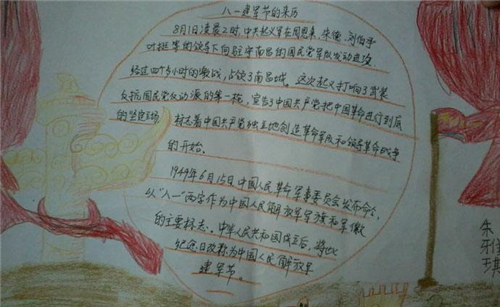 八一建军节的来历
8月1日凌晨2时,中共起义军在周恩来、朱德、刘伯承
叶挺等的领导下向驻守南昌的国民党军队发动进攻
经过四个多小时的激战,占领了南昌城。这次起义打响了武装
反抗国民党反动派的第一枪,宣告了中国共产党把中国革命进行到底
的坚定立场,标志着中国共产党独立地创造革命军队和领导革命战争
的开始。
1949年6月15日中国人民革命军事委员会发布命令:
以“八一”两字作为中国人民解放军军旗和军徽
的主要标志。中华人民共和国成立后,将此
纪念日改称为中国人民解放军
建军节。
朱